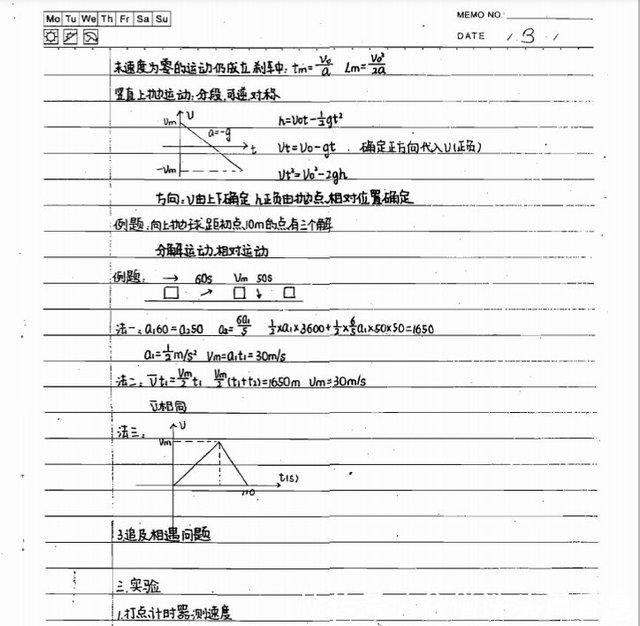 Mo Tu We Th Fr Sa Su
MEMO NO.
DATE / 3 /
末速度为零的运动仍成立 刹车中: tm=V₀/a Lm=V₀²/2a
竖直上抛运动:分段,可逆,对称
Vm V a=-g t -Vm
h=V₀t-½gt²
Vt=V₀-gt 确定正方向代入V(正负)
Vt²=V₀²-2gh
方向:V由上下确定 h正负由抛点,相对位置确定
例题:向上抛球,距初点10m的点,有三个解
分解运动,相对运动
例题: → 60s Vm 50s
法一: a₁60=a₂50 a₂=6a₁/5 ½×a₁×3600+½×6/5a₁×50×50=1650
a₁=½m/s² Vm=a₁t₁=30m/s
法二: V̄t₁=Vm/2 t₁ Vm/2(t₁+t₂)=1650m Vm=30m/s
V̄相同
法三: V Vm 110 t(s)
3.追及相遇问题
三.实验
1.打点计时器:测速度